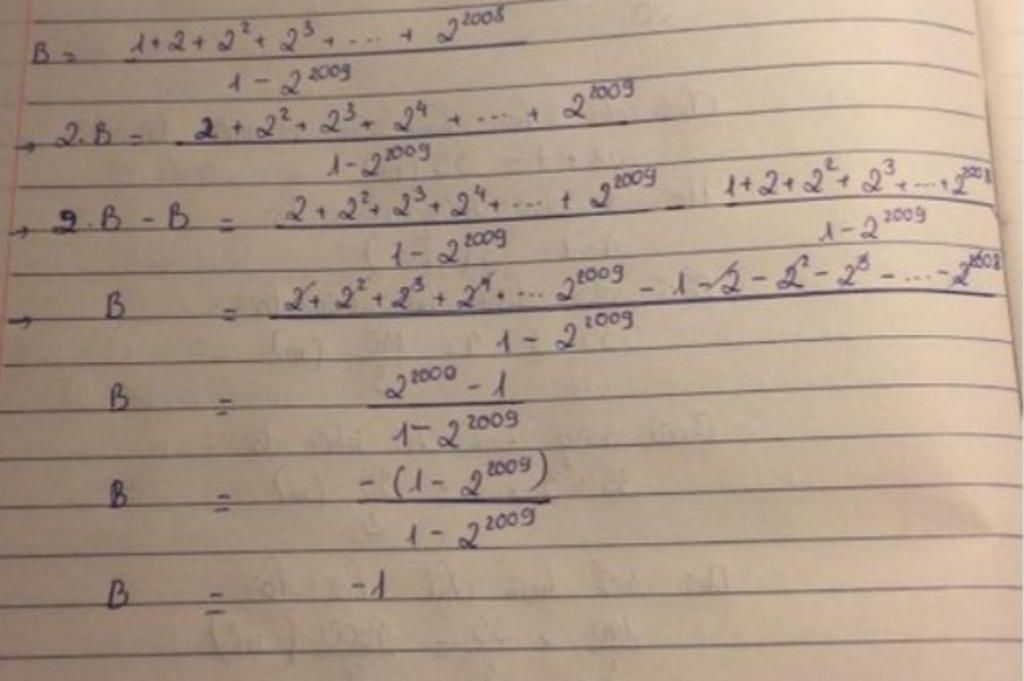 B = (1 + 2 + 2² + 2³ + ... + 2²⁰⁰⁸) / (1 - 2²⁰⁰⁹)
→ 2.B = (2 + 2² + 2³ + 2⁴ + ... + 2²⁰⁰⁹) / (1 - 2²⁰⁰⁹)
→ 2.B - B = (2 + 2² + 2³ + 2⁴ + ... + 2²⁰⁰⁹) / (1 - 2²⁰⁰⁹) - (1 + 2 + 2² + 2³ + ... + 2²⁰⁰⁸) / (1 - 2²⁰⁰⁹)
→ B = (2 + 2² + 2³ + 2⁴ + ... 2²⁰⁰⁹ - 1 - 2 - 2² - 2³ - ... - 2²⁰⁰⁸) / (1 - 2²⁰⁰⁹)
B = (2²⁰⁰⁹ - 1) / (1 - 2²⁰⁰⁹)
B = -(1 - 2²⁰⁰⁹) / (1 - 2²⁰⁰⁹)
B = -1